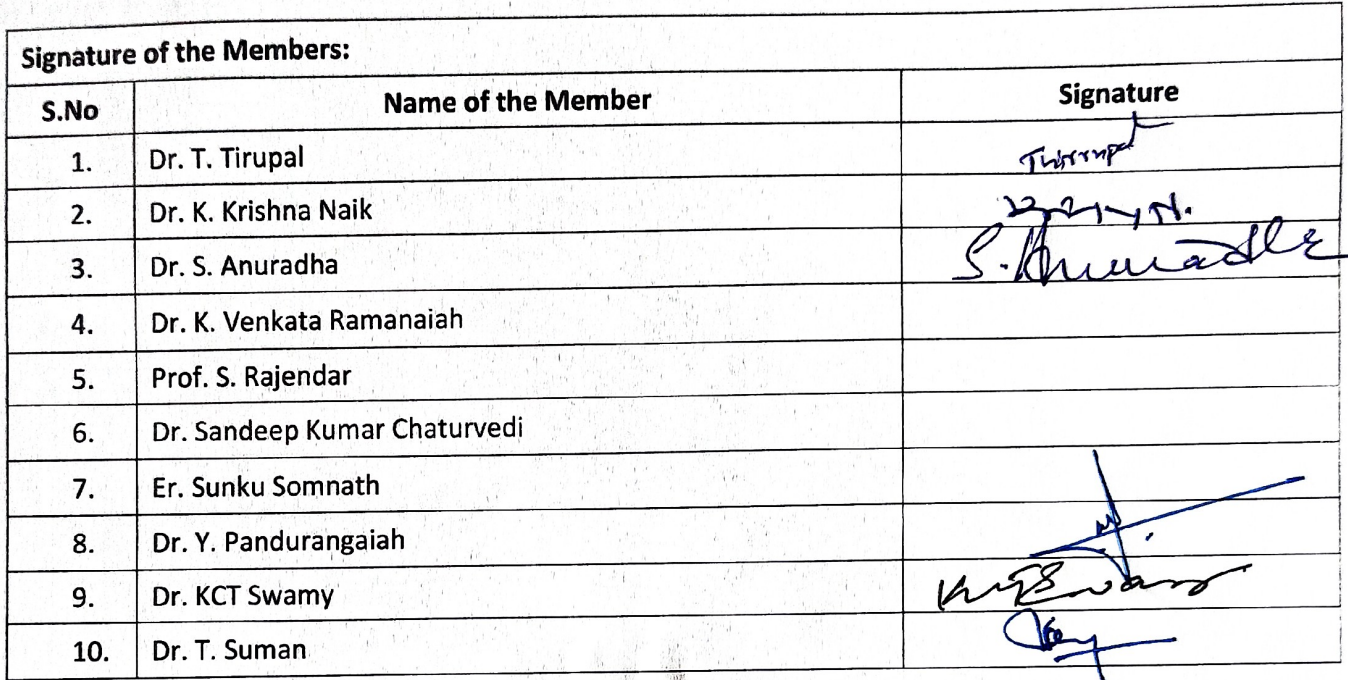 Signature of the Members:
S.No Name of the Member Signature
1. Dr. T. Tirupal
2. Dr. K. Krishna Naik
3. Dr. S. Anuradha S. Anuradha
4. Dr. K. Venkata Ramanaiah
5. Prof. S. Rajendar
6. Dr. Sandeep Kumar Chaturvedi
7. Er. Sunku Somnath
8. Dr. Y. Pandurangaiah
9. Dr. KCT Swamy
10. Dr. T. Suman